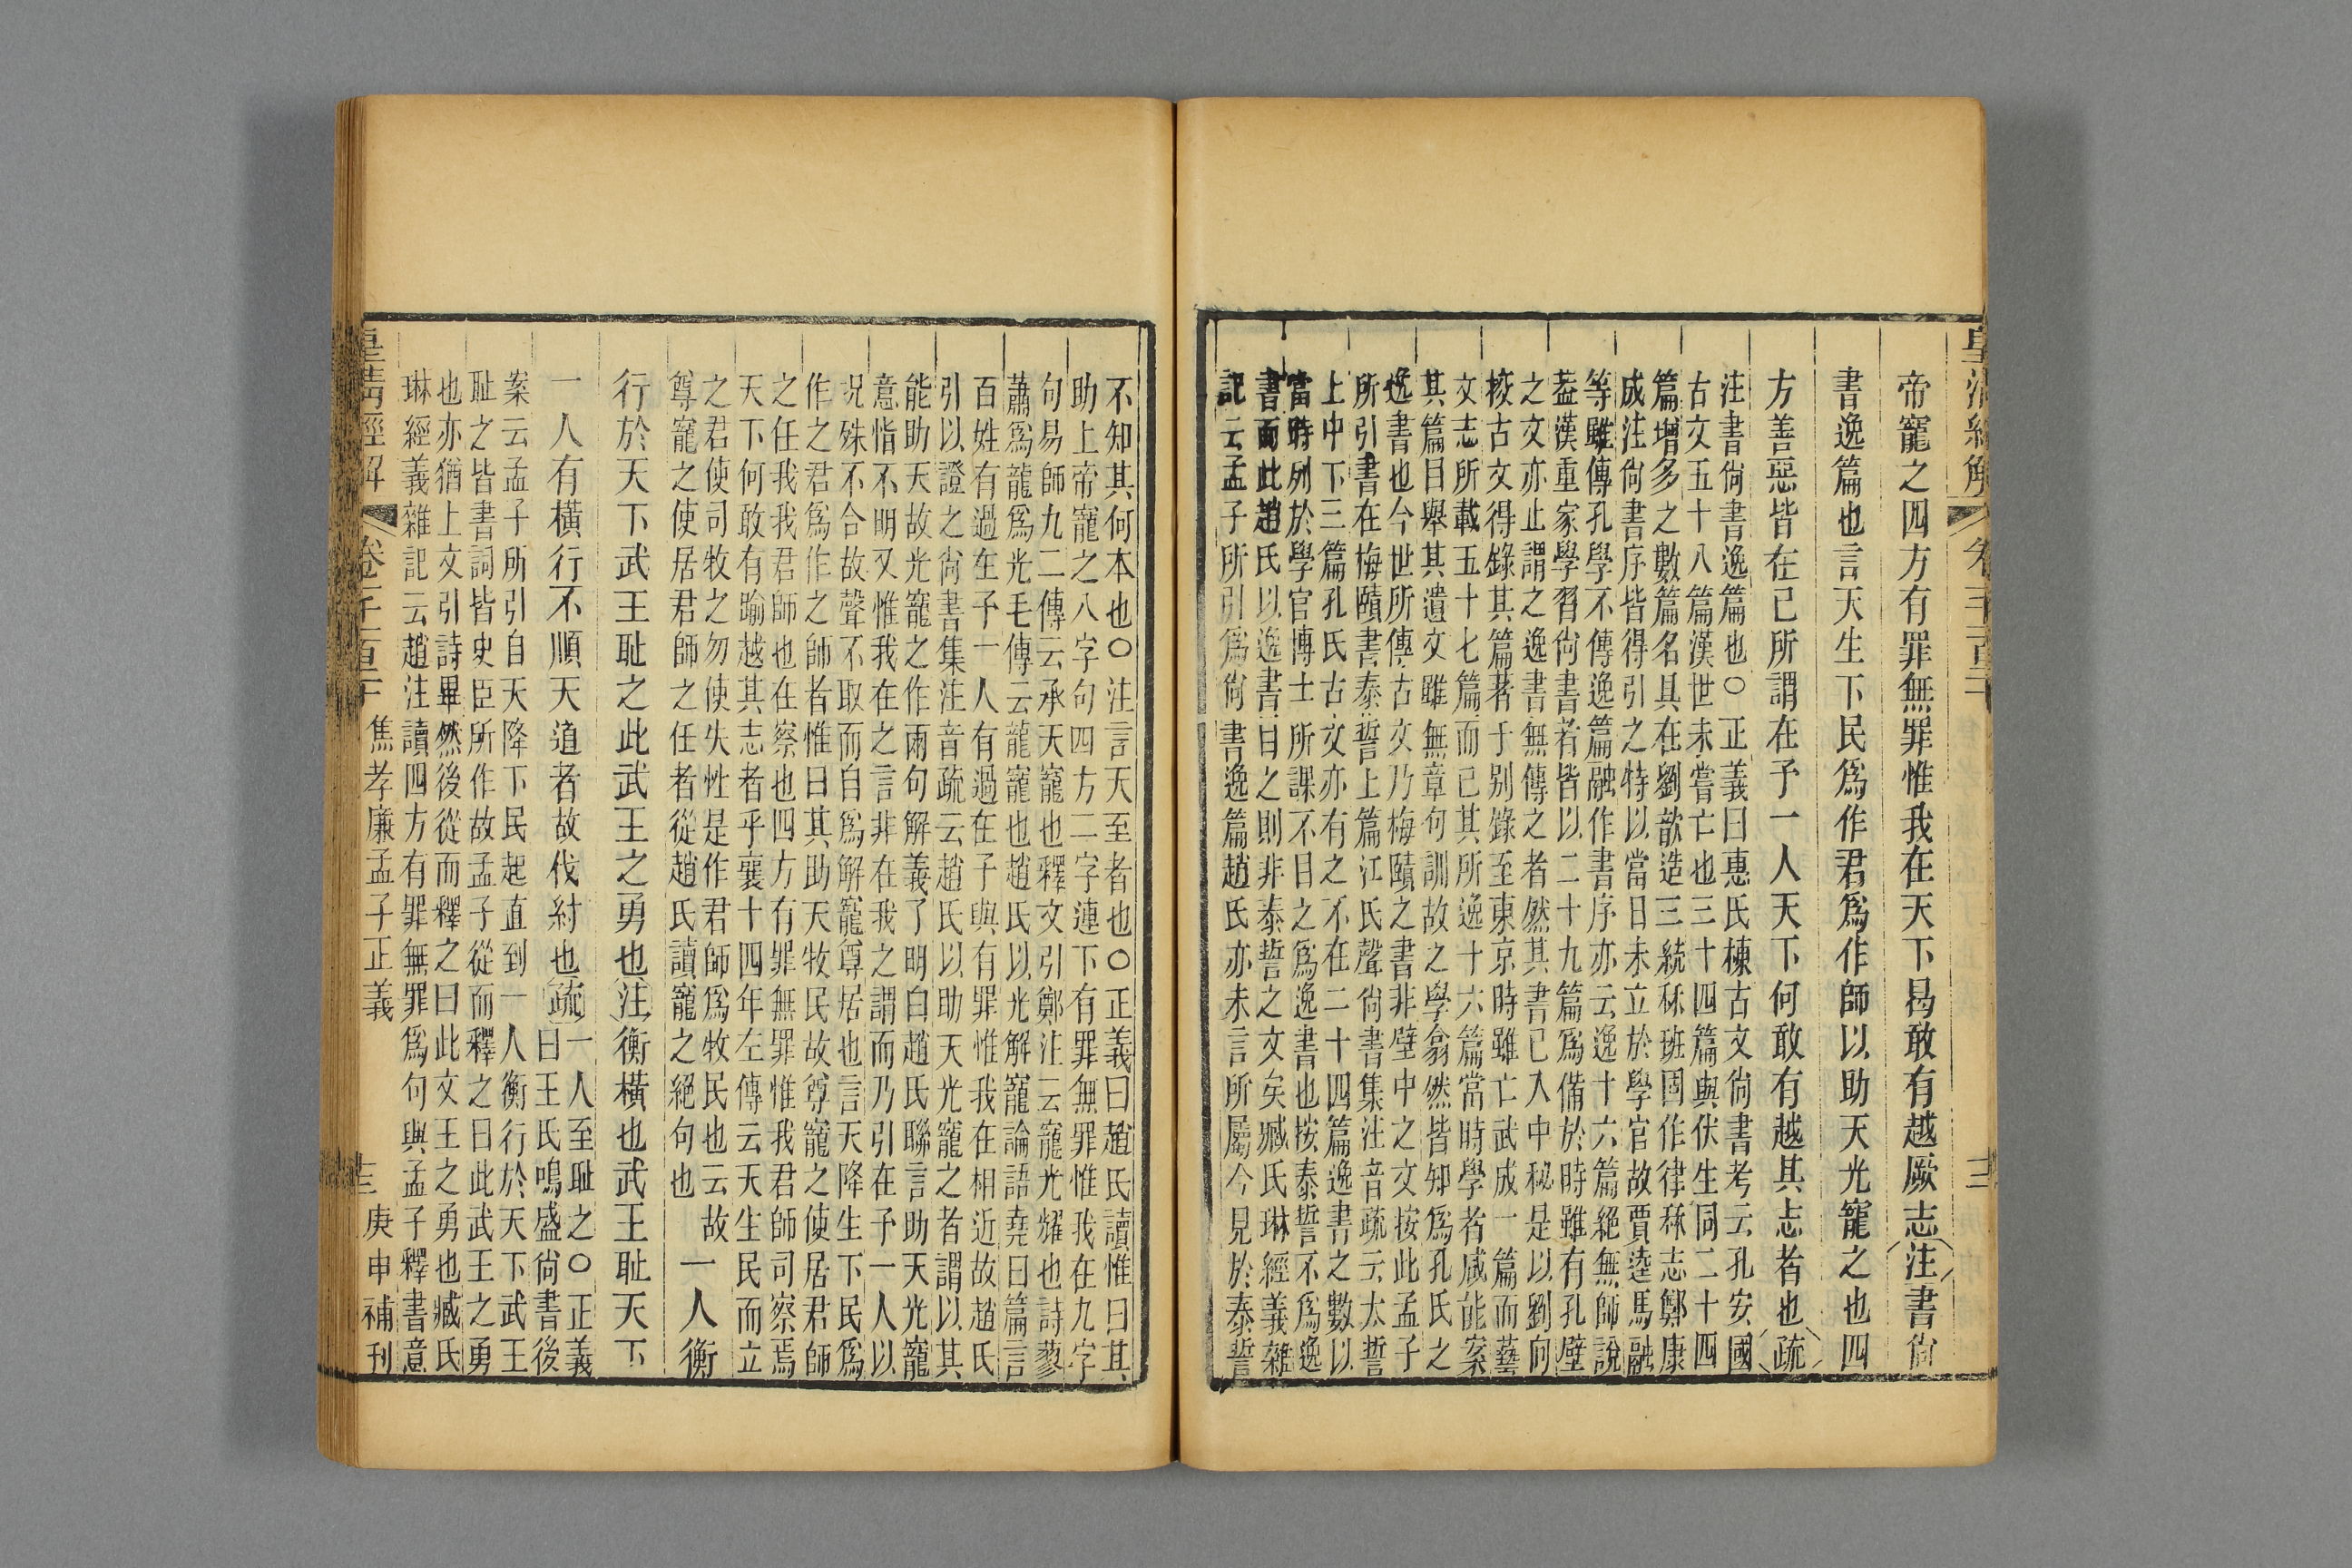 皇清經解
帝寵之四方有罪無罪惟我在天下曷敢有越厥志注書尙
書逸篇也言天生下民爲作君爲作師以助天光寵之也四
方善惡皆在己所謂在予一人天下何敢有越其志者也疏
注書尙書逸篇也○正義曰惠氏棟古文尙書考云孔安國
古文五十八篇漢世未嘗亡也三十四篇與伏生同二十四
篇增多之數篇名具在劉歆造三統秝班固作律秝志鄭康
成注尙書序皆得引之特以當日未立於學官故賈逵馬融
等雖傳孔學不傳逸篇融作書序亦云逸十六篇絕無師說
葢漢重家學習尙書者皆以二十九篇爲備於時雖有孔壁
之文亦止謂之逸書無傳之者然其書已入中秘是以劉向
挍古文得錄其篇著于別錄至東京時雖亡武成一篇而藝
文志所載五十七篇而已其所逸十六篇當時學者咸能案
其篇目舉其遺文雖無章句訓故之學翕然皆知爲孔氏之
逸書也今世所傳古文乃梅賾之書非壁中之文按此孟子
所引書在梅賾書泰誓上篇江氏聲尙書集注音疏云太誓
上中下三篇孔氏古文亦有之不在二十四篇逸書之數以
當時列於學官博士所課不目之爲逸書也按泰誓不爲逸
書而此趙氏以逸書目之則非泰誓之文矣臧氏琳經義雜
記云孟子所引爲尙書逸篇趙氏亦未言所屬今見於泰誓
不知其何本也○注言天至者也○正義曰趙氏讀惟曰其
助上帝寵之八字句四方二字連下有罪無罪惟我在九字
句易師九二傳云承天寵也釋文引鄭注云寵光耀也詩蓼
蕭爲龍爲光毛傳云龍寵也趙氏以光解寵論語堯曰篇言
百姓有過在予一人有過在予與有罪惟我在相近故趙氏
引以證之尙書集注音疏云趙氏以助天光寵之者謂以其
能助天故光寵之作兩句解義了明白趙氏聯言助天光寵
意惝不明又惟我在之言非在我之謂而乃引在予一人以
況殊不合故聲不取而自爲解寵尊居也言天降生下民爲
作之君爲作之師者惟曰其助天牧民故尊寵之使居君師
之任我我君師也在察也四方有罪無罪惟我君師司察焉
天下何敢有踰越其志者乎襄十四年左傳云天生民而立
之君使司牧之勿使失性是作君師爲牧民也云故
尊寵之使居君師之任者從趙氏讀寵之絕句也
一人衡
行於天下武王耻之此武王之勇也注衡橫也武王耻天下
一人有橫行不順天道者故伐紂也疏一人至耻之○正義
曰王氏鳴盛尙書後
案云孟子所引自天降下民起直到一人衡行於天下武王
耻之皆書詞皆史臣所作故孟子從而釋之曰此武王之勇
也亦猶上文引詩畢然後從而釋之曰此文王之勇也臧氏
琳經義雜記云趙注讀四方有罪無罪爲句與孟子釋書意
皇淸經解 焦孝廉孟子正義 庚申補刊